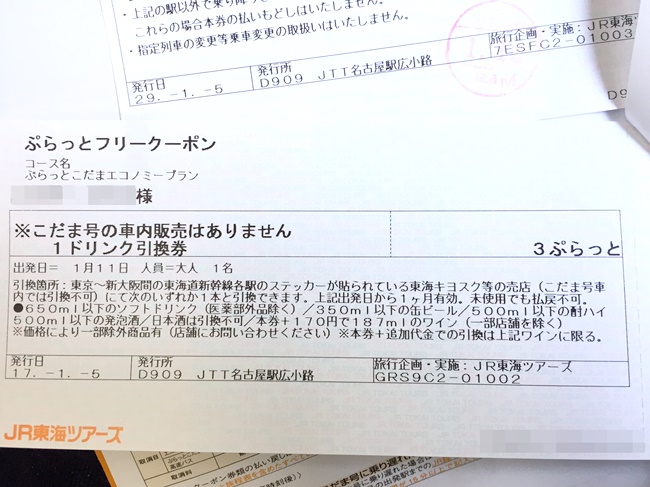 ・上記の駅以外で乗り降
これらの場合本券の払いもどしはいたしません。
・指定列車の変更等乗車変更の取扱いはいたしません。
発行日
29.-1.-5
発行所
D909 JTT名古屋駅広小路
旅行企画・実施：JR東海
7ESFC2-01003
D9
ぷらっとフリークーポン
コース名
ぷらっとこだまエコノミープラン
様
※こだま号の車内販売はありません
1ドリンク引換券
3ぷらっと
出発日= 1月11日 人員=大人 1名
引換箇所：東京～新大阪間の東海道新幹線各駅のステッカーが貼られている東海キヨスク等の売店（こだま号車
内では引換不可）にて次のいずれか1本と引換できます。上記出発日から1ヶ月有効。未使用でも払戻不可。
●650ml以下のソフトドリンク（医薬部外品除く）／350ml以下の缶ビール／500ml以下の酎ハイ
500ml以下の発泡酒／日本酒は引換不可／本券+170円で187mlのワイン（一部店舗を除く）
※価格により一部除外商品有（店舗にお問い合わせください）※本券+追加代金での引換は上記ワインに限る。
発行日
17.-1.-5
発行所
D909 JTT名古屋駅広小路
旅行企画・実施：JR東海ツアーズ
GRS9C2-01002
JR東海ツアーズ
取消日
取消料
クーポン券類の払い戻し
だま号に乗り遅れた場合